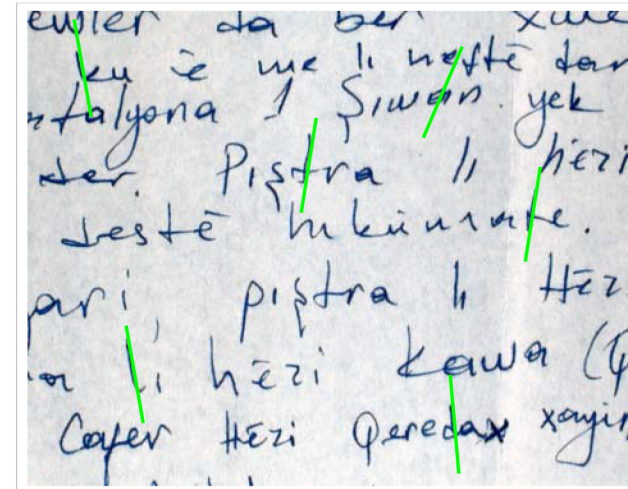 da ber
ku ê me li neftê dan
talyona 1 Şıwan yek
der. Pıştra lı hêzi
destê hukûmate.
pari, pıştra lı Hêz
lı hêzi Kawa (Q
Cafer Hêzi Qeredax xayin